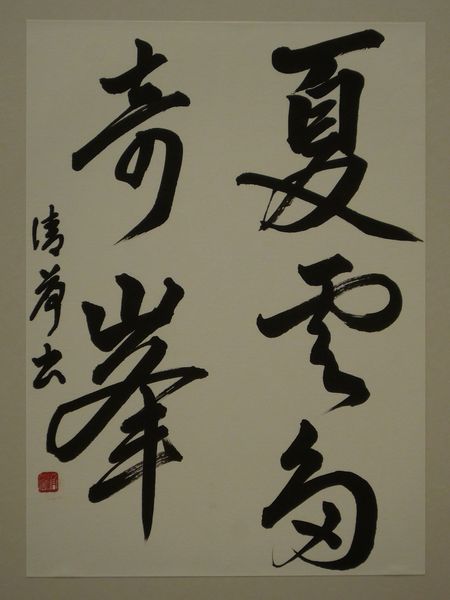 夏雲多
奇峯
清書